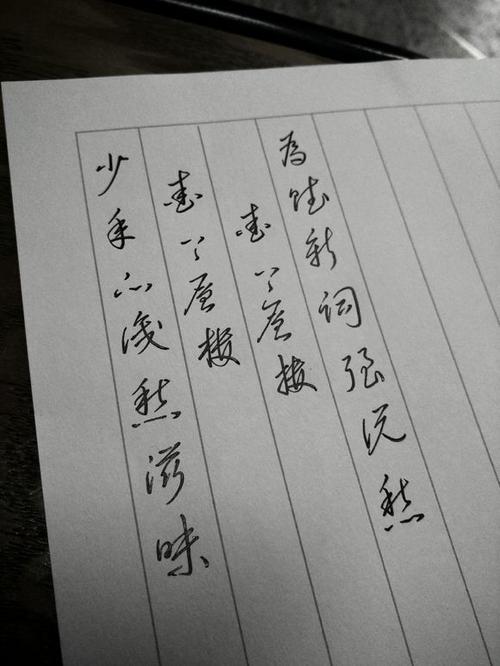 少年不识愁滋味
爱上层楼
爱上层楼
为赋新词强说愁